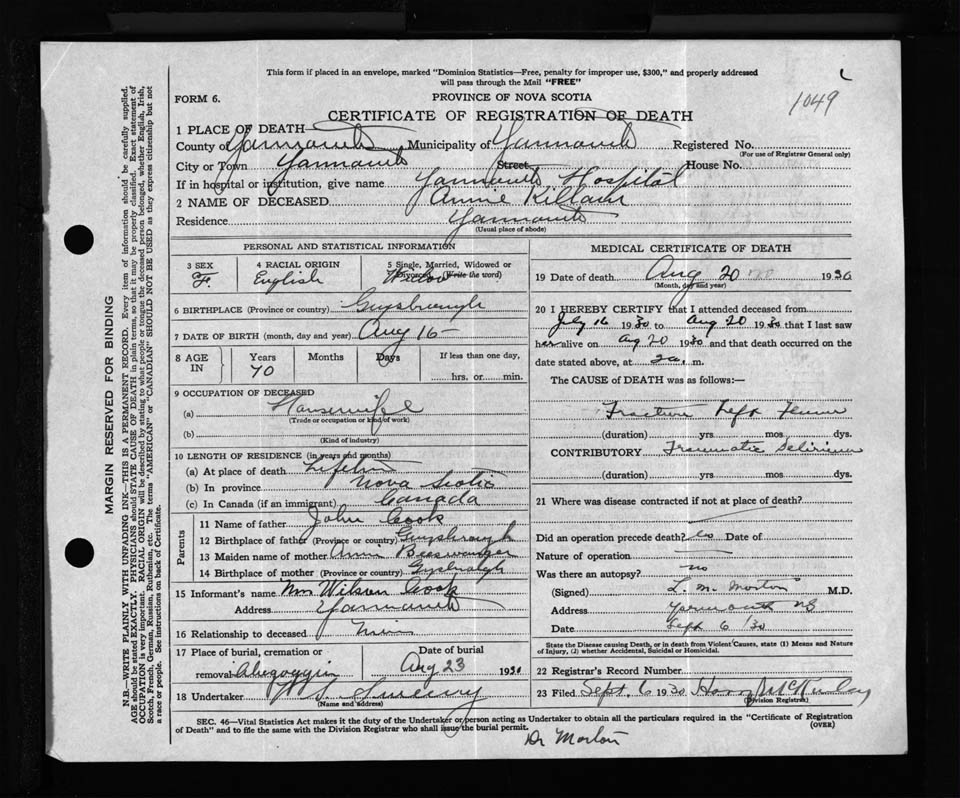 This form if placed in an envelope, marked "Dominion Statistics—Free, penalty for improper use, $300," and properly addressed
will pass through the Mail "FREE"
FORM 6.
PROVINCE OF NOVA SCOTIA
1049
CERTIFICATE OF REGISTRATION OF DEATH
1 PLACE OF DEATH
County of Yarmouth Municipality of Yarmouth Registered No.
(For use of Registrar General only)
City or Town Yarmouth Street House No.
If in hospital or institution, give name Yarmouth Hospital
2 NAME OF DECEASED Annie Killam
Residence Yarmouth
(Usual place of abode)
PERSONAL AND STATISTICAL INFORMATION
3 SEX F.
4 RACIAL ORIGIN English
5 Single, Married, Widowed or Divorced (Write the word) Widow
6 BIRTHPLACE (Province or country) Guysbrough
7 DATE OF BIRTH (month, day and year) Aug 16
8 AGE IN Years 70 Months Days If less than one day, hrs. or min.
9 OCCUPATION OF DECEASED
(a) Housewife
(Trade or occupation or kind of work)
(b)
(Kind of industry)
10 LENGTH OF RESIDENCE (in years and months)
(a) At place of death Lifetime
(b) In province Nova Scotia
(c) In Canada (if an immigrant) Canada
Parents
11 Name of father John Cook
12 Birthplace of father (Province or country) Guysbrough
13 Maiden name of mother
14 Birthplace of mother (Province or country)
15 Informant's name Wilson Cook
Address Yarmouth
16 Relationship to deceased
17 Place of burial, cremation or removal
Date of burial Aug 23 1930
18 Undertaker Sweeny
(Name and address)
MEDICAL CERTIFICATE OF DEATH
19 Date of death Aug 20 1930
(Month, day and year)
20 I HEREBY CERTIFY that I attended deceased from
July 16 1930 to Aug 20 1930 that I last saw
her alive on Aug 20 1930 and that death occurred on the
date stated above, at 2 a. m.
The CAUSE of DEATH was as follows:—
Fracture Left Femur
(duration) yrs mos dys.
CONTRIBUTORY Traumatic Delirium
(duration) yrs mos dys.
21 Where was disease contracted if not at place of death?
Did an operation precede death? Date of
Nature of operation
Was there an autopsy? no
(Signed) L. M. Morton M.D.
Address Yarmouth NS
Date Sept 6/30
State the Disease causing Death, or in death from Violent Causes, state (1) Means and Nature of Injury, (2) whether Accidental, Suicidal or Homicidal.
22 Registrar's Record Number
23 Filed Sept. 6 1930
(Division Registrar)
SEC. 46—Vital Statistics Act makes it the duty of the Undertaker or person acting as Undertaker to obtain all the particulars required in the "Certificate of Registration
of Death" and to file the same with the Division Registrar who shall issue the burial permit.
(OVER)
Dr Morton
MARGIN RESERVED FOR BINDING
N.B.—WRITE PLAINLY WITH UNFADING INK—THIS IS A PERMANENT RECORD. Every item of information should be carefully supplied.
AGE should be stated EXACTLY. PHYSICIANS should STATE CAUSE OF DEATH in plain terms, so that it may be properly classified. Exact statement of
OCCUPATION is very important. RACIAL ORIGIN will be described by stating to what people or tongue the deceased person belonged, whether English, Irish,
Scotch, French, German, Russian, Ruthenian, etc. The terms "AMERICAN" or "CANADIAN" SHOULD NOT BE USED as they express citizenship but not
a race or people. See instructions on back of Certificate.